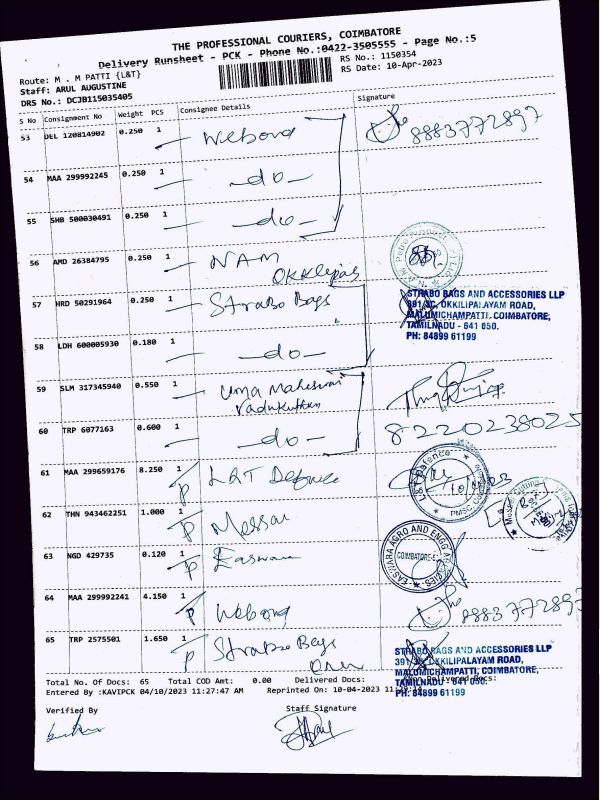 THE PROFESSIONAL COURIERS, COIMBATORE
Delivery Runsheet - PCK - Phone No.:0422-3505555 - Page No.:5
Route: M . M PATTI {L&T}
RS No.: 1150354
Staff: ARUL AUGUSTINE
RS Date: 10-Apr-2023
DRS No.: DCJB115035405
S No Consignment No Weight PCS Consignee Details Signature
53 DEL 120814902 0.250 1 Webong 8883772897
54 MAA 299992245 0.250 1 -do-
55 SHB 500030491 0.250 1 -do-
56 AMD 26384795 0.250 1 NAM
57 HRD 50291964 0.250 1 Strabo Bags
STRABO BAGS AND ACCESSORIES LLP
391/3C, OKKILIPALAYAM ROAD,
MALUMICHAMPATTI, COIMBATORE,
TAMILNADU - 641 050.
PH: 84899 61199
58 LDH 600005930 0.180 1 -do-
59 SLM 317345940 0.550 1 Uma Maheswari
60 TRP 6077163 0.600 1 -do- 8220238025
61 MAA 299659176 8.250 1 P L&T Defence
62 THN 943462251 1.000 1 P Messar
63 NGD 429735 0.120 1 P Easwara
EASWARA AGRO AND ENGG
COIMBATORE
64 MAA 299992241 4.150 1 P Webong 8883772897
65 TRP 2575501 1.650 1 P Strabo Bags
STRABO BAGS AND ACCESSORIES LLP
391/3C, OKKILIPALAYAM ROAD,
MALUMICHAMPATTI, COIMBATORE,
TAMILNADU - 641 050.
PH: 84899 61199
Total No. Of Docs: 65 Total COD Amt: 0.00 Delivered Docs: Non Delivered Docs:
Entered By :KAVIPCK 04/10/2023 11:27:47 AM Reprinted On: 10-04-2023
Verified By Staff Signature